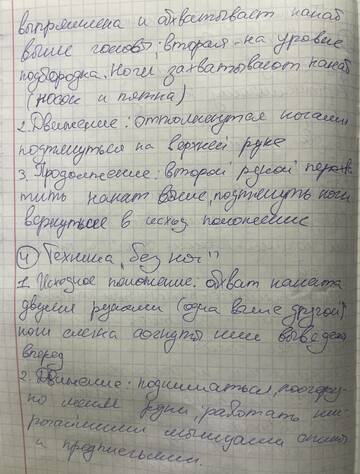 выпрямлена и обхватывает канат
выше головы; вторая - на уровне
подбородка. Ноги захватывают канат
(носок и пятка)
2. Движение: оттолкнутся ногами
подтянуться на верхней руке
3. Продолжение: второй рукой перехва
тить канат выше, подтянуть ноги
вернуться в исход положение
4 Техника „без ног"
1. Исходное положение: обхват каната
двумя руками (одна выше другой)
ноги слегка согнуты или выведены
вперед
2. Движение: подниматься, поочеру
но меняя руки, работать
мышцами спины
и предплечьями.